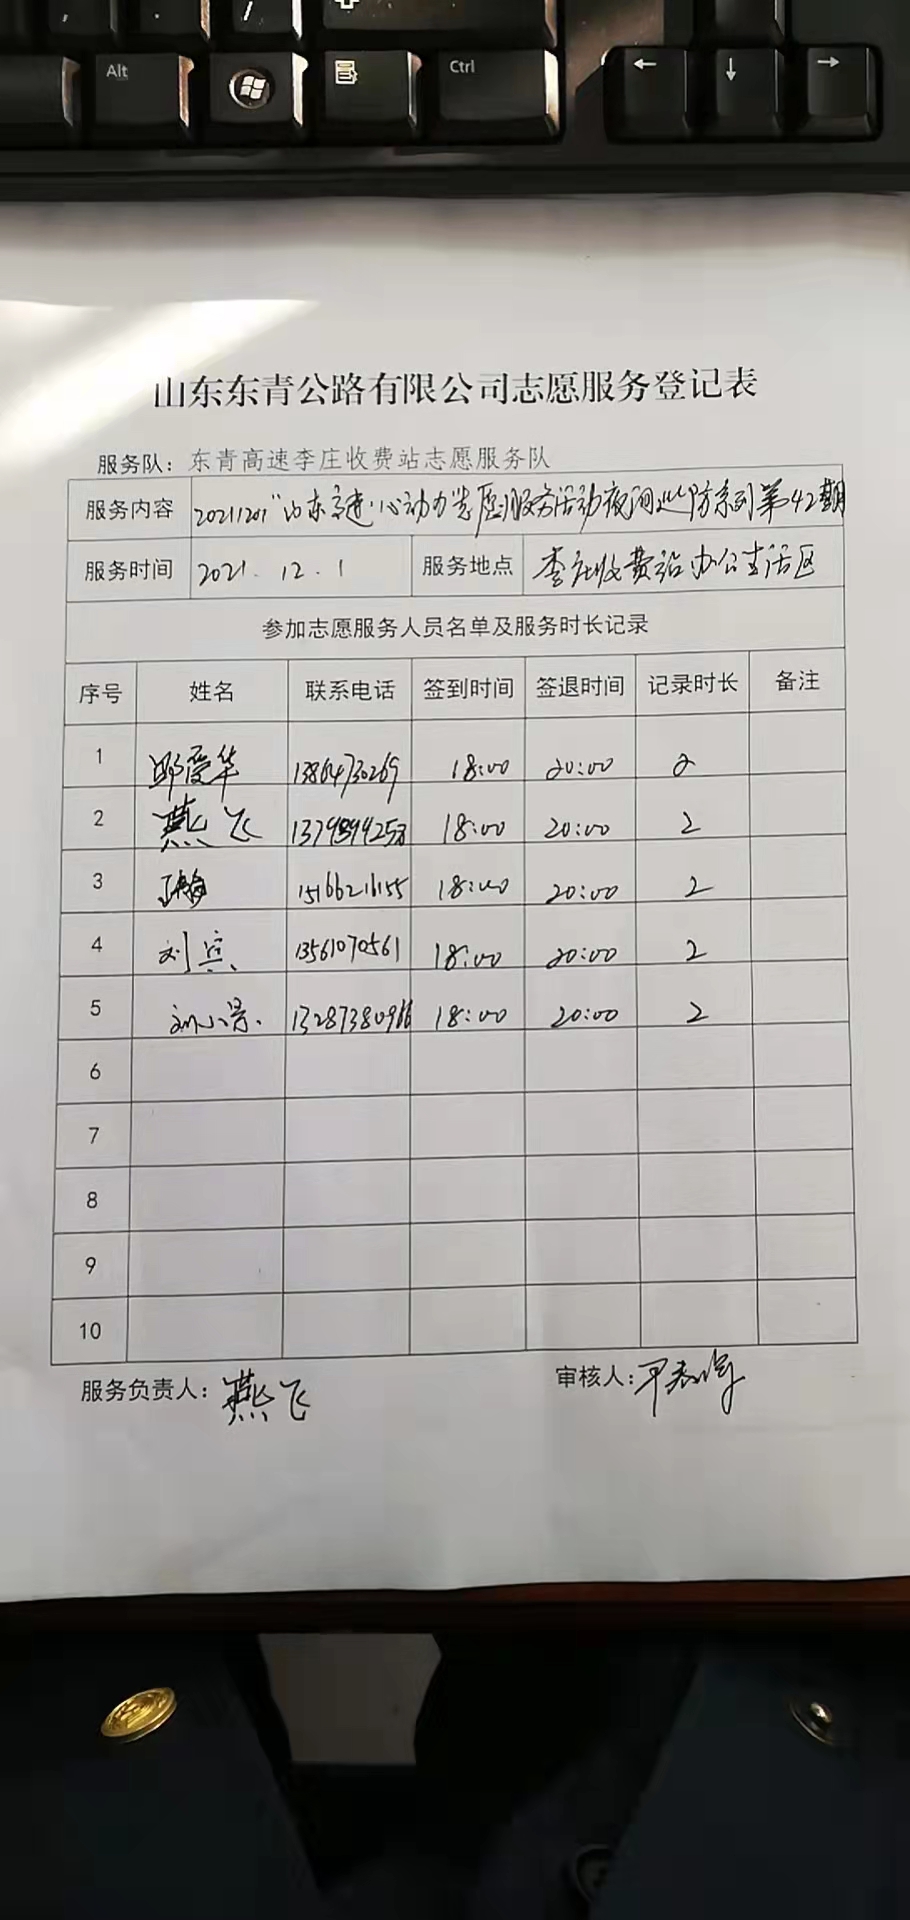 Alt
Ctrl
山东东青公路有限公司志愿服务登记表
服务队：东青高速李庄收费站志愿服务队
服务内容 20211201“山东高速·心动力志愿服务活动夜间巡防系列第42期
服务时间 2021.12.1 服务地点 李庄收费站办公生活区
参加志愿服务人员名单及服务时长记录
序号 姓名 联系电话 签到时间 签退时间 记录时长 备注
1 邱爱华 18:00 20:00 2
2 燕飞 18:00 20:00 2
3 15166216155 18:00 20:00 2
4 刘宾 13561070561 18:00 20:00 2
5 刘小景 18:00 20:00 2
6
7
8
9
10
服务负责人：燕飞 审核人：